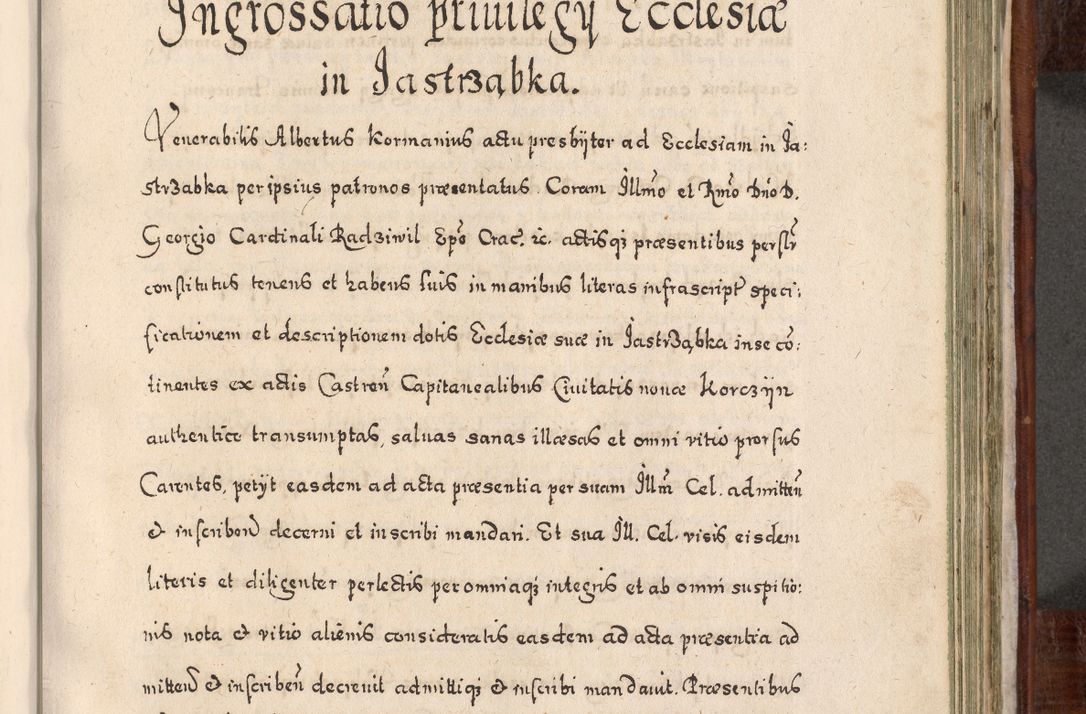 Ingrossatio priuilegÿ Ecclesiæ
in Jastrząbka.
Venerabilis Albertus Kormanius actu presbÿter ad Ecclesiam in Ja:
strzabka per ipsius patronos præsentatus. Coram Illm̃o et Rm̃o Dño D.
Georgio Cardinali Radziwil Ep̃o Crac. ꝛc. actisqꝫ præsentibus persl̃r
constitutus tenens et habens suis in manibus literas infrascript̃ speci:
ficationem et descriptionem dotis Ecclesiæ suæ in Jastrząbka in se cõ:
tinentes ex actis Castreñ Capitanealibus Ciuitatis nouæ Korczÿn
authentice transumptas, saluas sanas illæsas et omni vitio prorsus
Carentes, petÿt easdem ad acta præsentia per suam Illm̃ Cel. admitteñ
& inscribend decerni et inscribi mandari. Et sua Ill. Cel. visis eisdem
literis et diligenter perlectis per omniaqꝫ integris et ab omni suspitio:
nis nota & vitio alienis consideratis easdem ad acta præsentia ad
mittend & inscribeñ decreuit admittiqꝫ & inscribi mandauit. Præsentibus